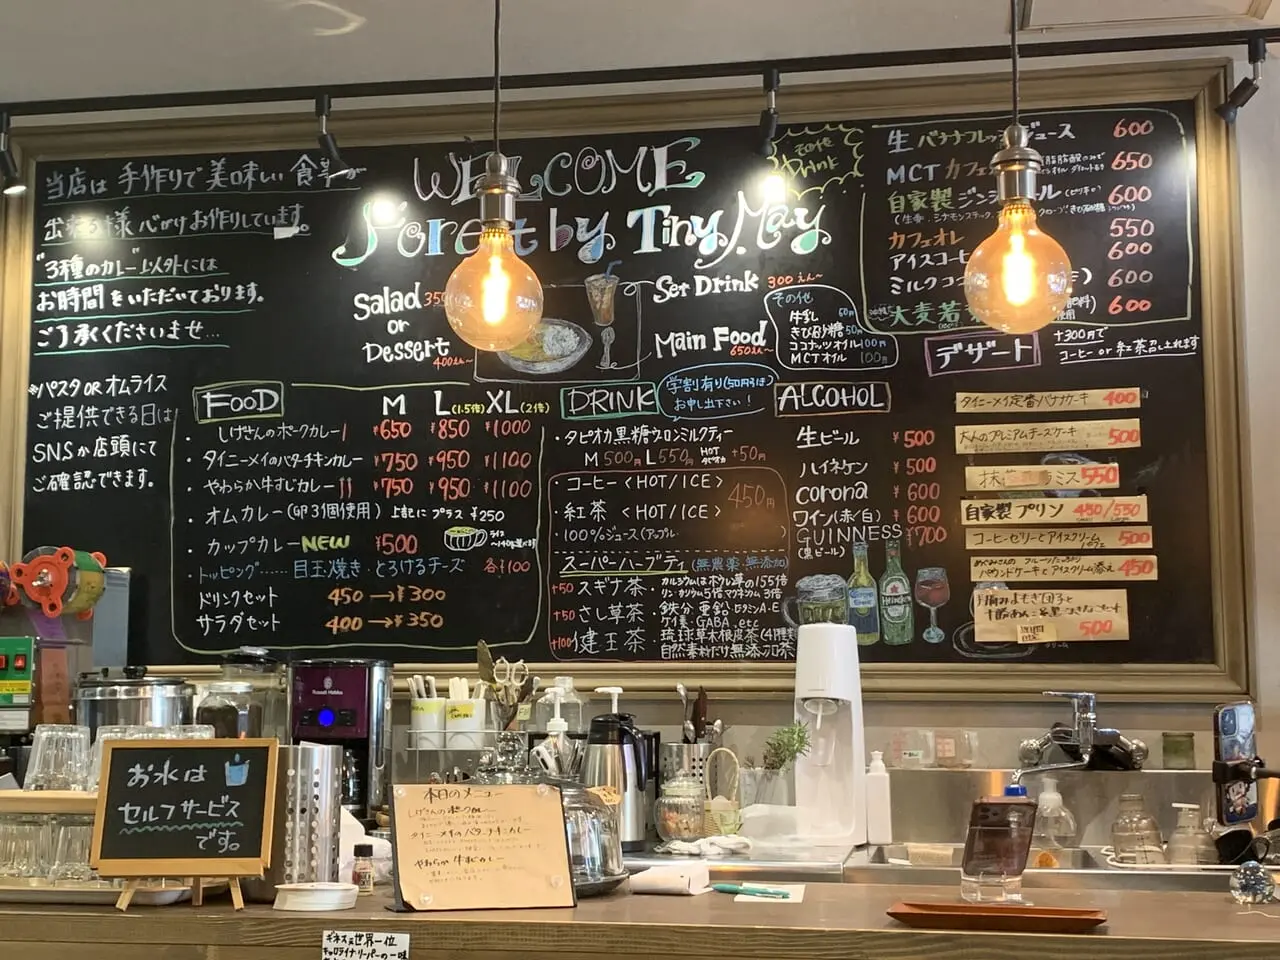 当店は 手作りで美味しい 食事が
出来る様 心がけお作りしています。
"3種のカレー"以外には
お時間をいただいております。
ご了承くださいませ…
※パスタORオムライス
ご提供できる日は
SNSか店頭にて
ご確認できます。
WELCOME
Forest by Tiny May
Salad 350
or
Dessert
400えん～
Set Drink 300えん～
Main Food
650えん～
その他
牛乳 50円
きび砂糖 50円
ココナッツオイル 100円
MCTオイル 100円
その他
Drink
生バナナフレッシュジュース 600
MCT カフェ 650
自家製 ジンジャエール 600
カフェオレ 550
アイスコーヒ 600
ミルクココ 600
大麦若 600
デザート
+300円で
コーヒー or 紅茶召し上れます
FOOD M L(1.5倍) XL(2倍)
・しげさんのポークカレー ¥650 ¥850 ¥1000
・タイニーメイのバターチキンカレー ¥750 ¥950 ¥1100
・やわらか牛すじカレー ¥750 ¥950 ¥1100
・オムカレー(卵3個使用) 上記に プラス ¥250
・カップカレー NEW ¥500
・トッピング…… 目玉焼き・とろけるチーズ 各¥100
ドリンクセット 450→¥300
サラダセット 400→¥350
DRINK
学割有り(50円引き)
お申し出下さい！
・タピオカ黒糖ウロンミルクティー
M 500円 L 550円 HOT タピオカ +50円
・コーヒー <HOT/ICE>
・紅茶 <HOT/ICE>
450円
・100%ジュース(アップル
スーパーハーブティ (無農薬・無添加)
+50 スギナ茶・カルシウムはホウレン草の155倍
リン・カリウム5倍マグネシウム3倍
+50 さし草茶・鉄分・亜鉛・ビタミンA・E
ケイ素・GABA.etc
+100 健王茶・琉球草木根皮茶(41種類
自然素材だけ無添加茶
ALCOHOL
生ビール ¥500
ハイネケン ¥500
corona ¥600
ワイン(赤/白) ¥600
GUINNESS ¥700
(黒ビール)
タイニーメイ定番バナナケーキ 400
大人のプレミアムチーズケーキ 500
ミス 550
自家製プリン 450/550
コーヒーゼリーとアイスクリーム
パフェ 500
めぐみさんの フルーツたっぷり
パウンドケーキとアイスクリーム添え 450
500
Russell Hobbs
お水は
セルフサービス
です。
本日のメニュー
しげさんのポークカレー
タイニーメイのバターチキンカレー
やわらか牛すじカレー
ギネス世界一位
キャロライナリーパーの一味